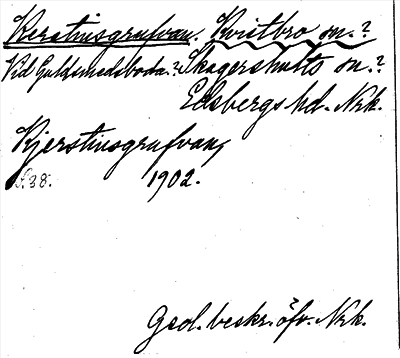 Kerstinsgrufvan. Kvistbro sn.?
Vid Guldsmedsboda.? Skagershults sn.?
Edsbergs hd. Nrk.
Kjerstinsgrufvan,
S. 38. 1902.
Geol. beskr. öfv. Nrk.